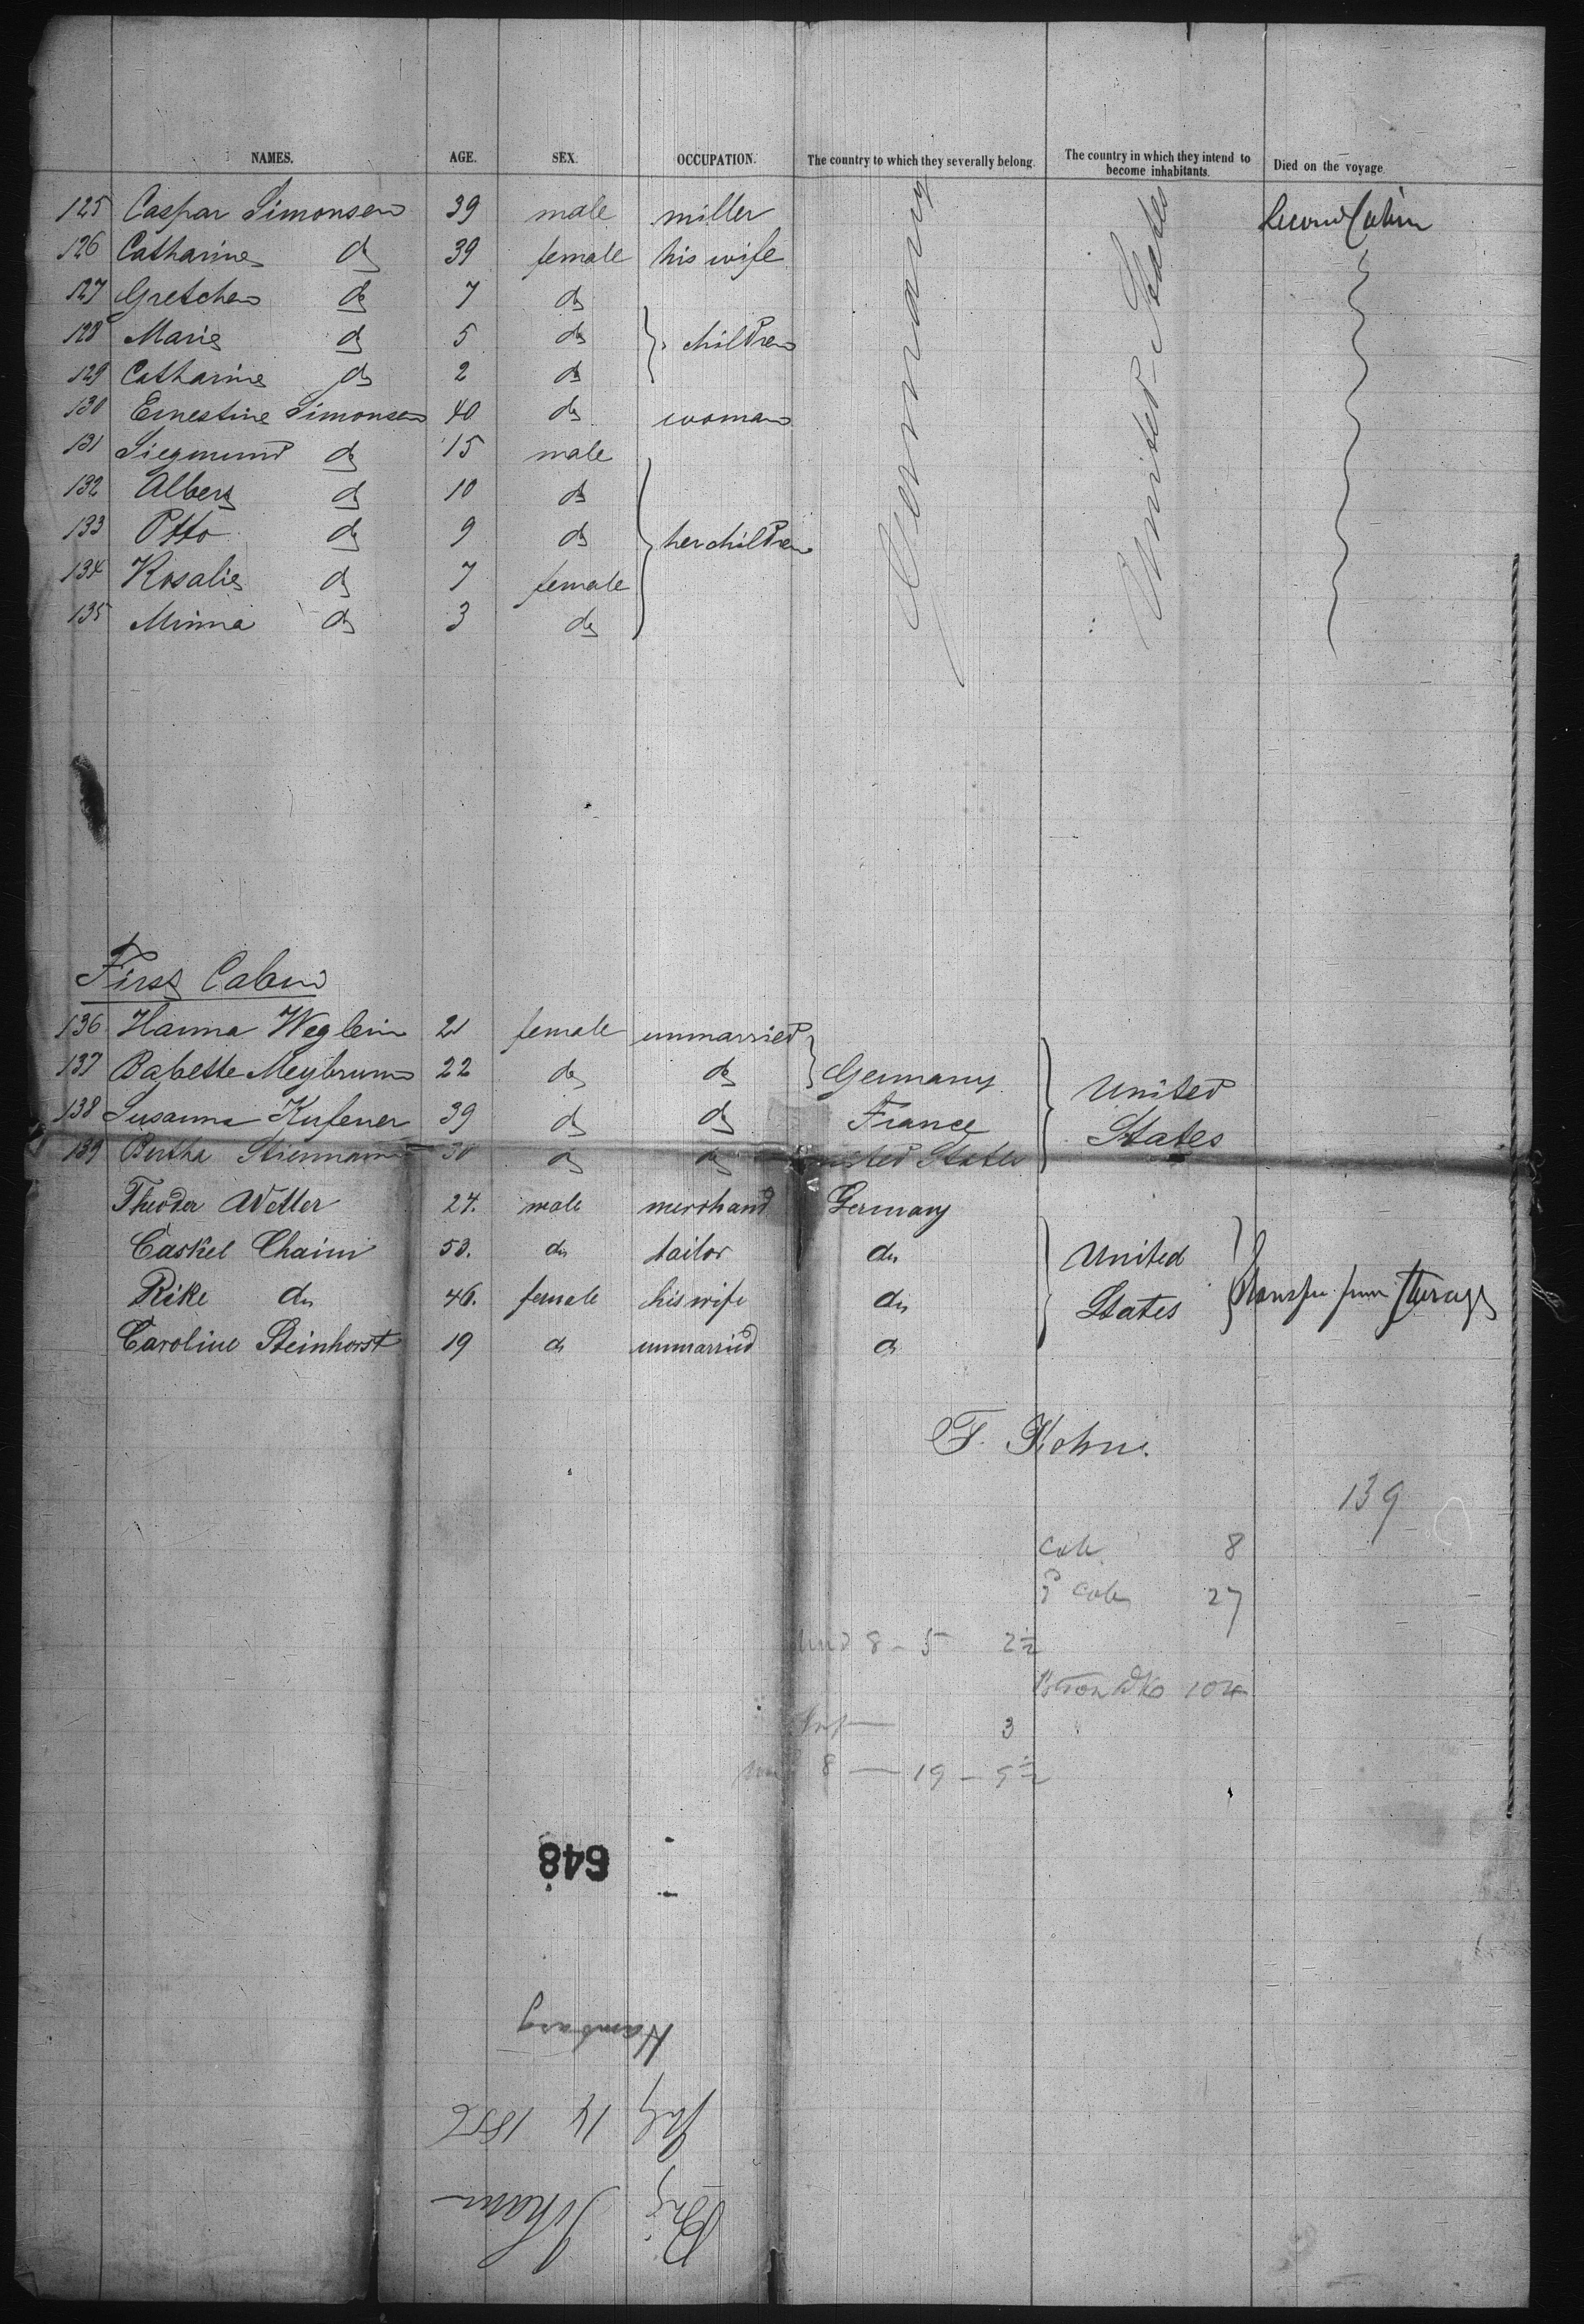 NAMES. AGE. SEX. OCCUPATION. The country to which they severally belong. The country in which they intend to become inhabitants. Died on the voyage.
125 Caspar Simonsen 39 male miller Second Cabin
126 Catharine do 39 female his wife
127 Gretchen do 7 do
128 Marie do 5 do children
129 Catharine do 2 do
130 Ernestine Simonsen 40 do woman
131 Siegmund do 15 male
132 Albert do 10 do
133 Otto do 9 do her children
134 Rosalie do 7 female
135 Minna do 3 do
Germany
United States
First Cabin
136 Hanna Weglein 21 female unmarried
137 Babette Meybrunn 22 do do Germany United
138 Susanna Kufener 39 do do France States
139 Bertha Stiennann 30 do do United States
Theodor Wetter 24. male merchand Germany
Caskel Chaim 53. do tailor do United
Rike do 46. female his wife do States Transfer from Steerage
Caroline Steinhorst 19 do unmarried do
F. Kohn.
139
Cab 8
2 Cab 27
Und 8 - 5 2½
104
Inf 3
8 — 19 - 9½
648
Hamburg
July 14 1856
Brig